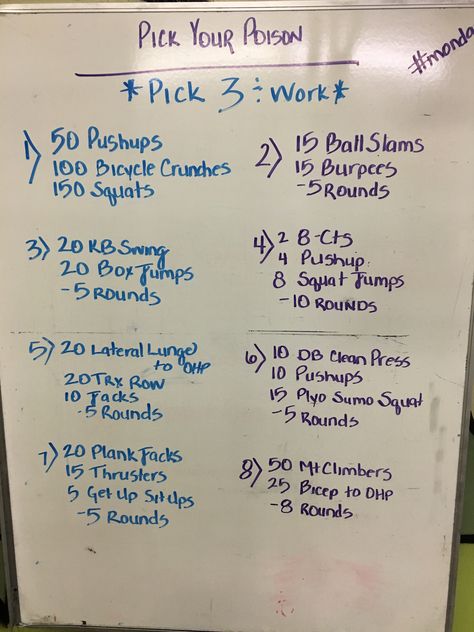 PICK YOUR POISON
#monda
*PICK 3 ÷ WORK*
1) 50 Pushups
100 Bicycle Crunches
150 Squats
2) 15 Ball Slams
15 Burpees
- 5 Rounds
3) 20 KB Swing
20 Box Jumps
- 5 Rounds
4) 2 8-Cts
4 Pushup
8 Squat Jumps
- 10 Rounds
5) 20 Lateral Lunge
to OHP
20 TRX Row
10 Jacks
- 5 Rounds
6) 10 DB Clean Press
10 Pushups
15 Plyo Sumo Squat
- 5 Rounds
7) 20 Plank Jacks
15 Thrusters
5 Get Up Sit Ups
- 5 Rounds
8) 50 Mt Climbers
25 Bicep to OHP
- 8 Rounds